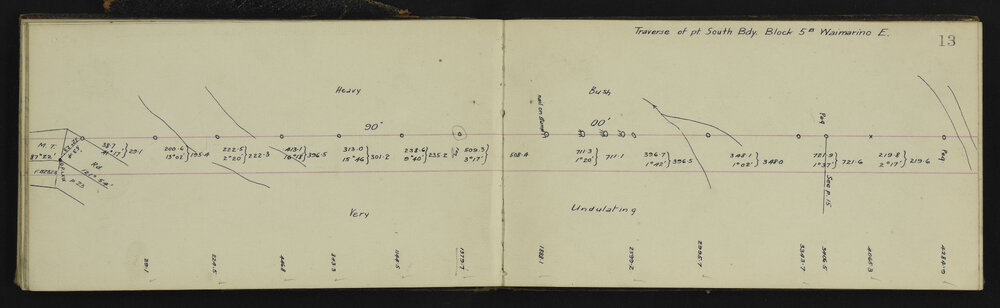 Traverse of pt South Bdy. Block 5ᴮ Waimarino E.
13
Heavy Bush
90° 00'
nail on stump
Peg
Peg
Peg
M. T.
87°52'
Rd
121° 54'
p. 23
38.7 } 29.1
41°17'
200.6 } 195.4
13°02'
222.5 } 222.3
2°20'
413.1 } 396.5
16°18'
313.0 } 301.2
15°46'
238.6 } 235.2
9°40'
509.3 } 508.4
3°17'
711.3 } 711.1
1°20'
396.7 } 396.5
1°42'
348.1 } 348.0
1°02'
721.9 } 721.6
1°37'
219.8 } 219.6
2°17'
See p. 15
Very Undulating
29.1
224.5
446.8
843.3
1144.5
1379.7
1888.1
2599.2
2995.7
3343.7
3406.5
4065.3
4284.9